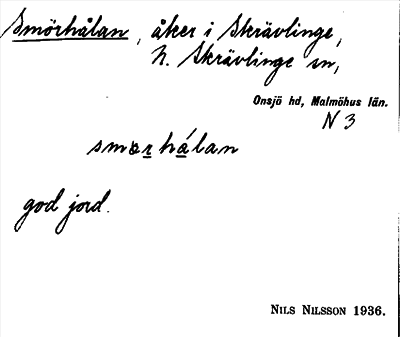 Smörhålan, åker i Skrävlinge,
N. Skrävlinge sn,
Onsjö hd, Malmöhus län.
N 3
smərhálan
god jord.
NILS NILSSON 1936.